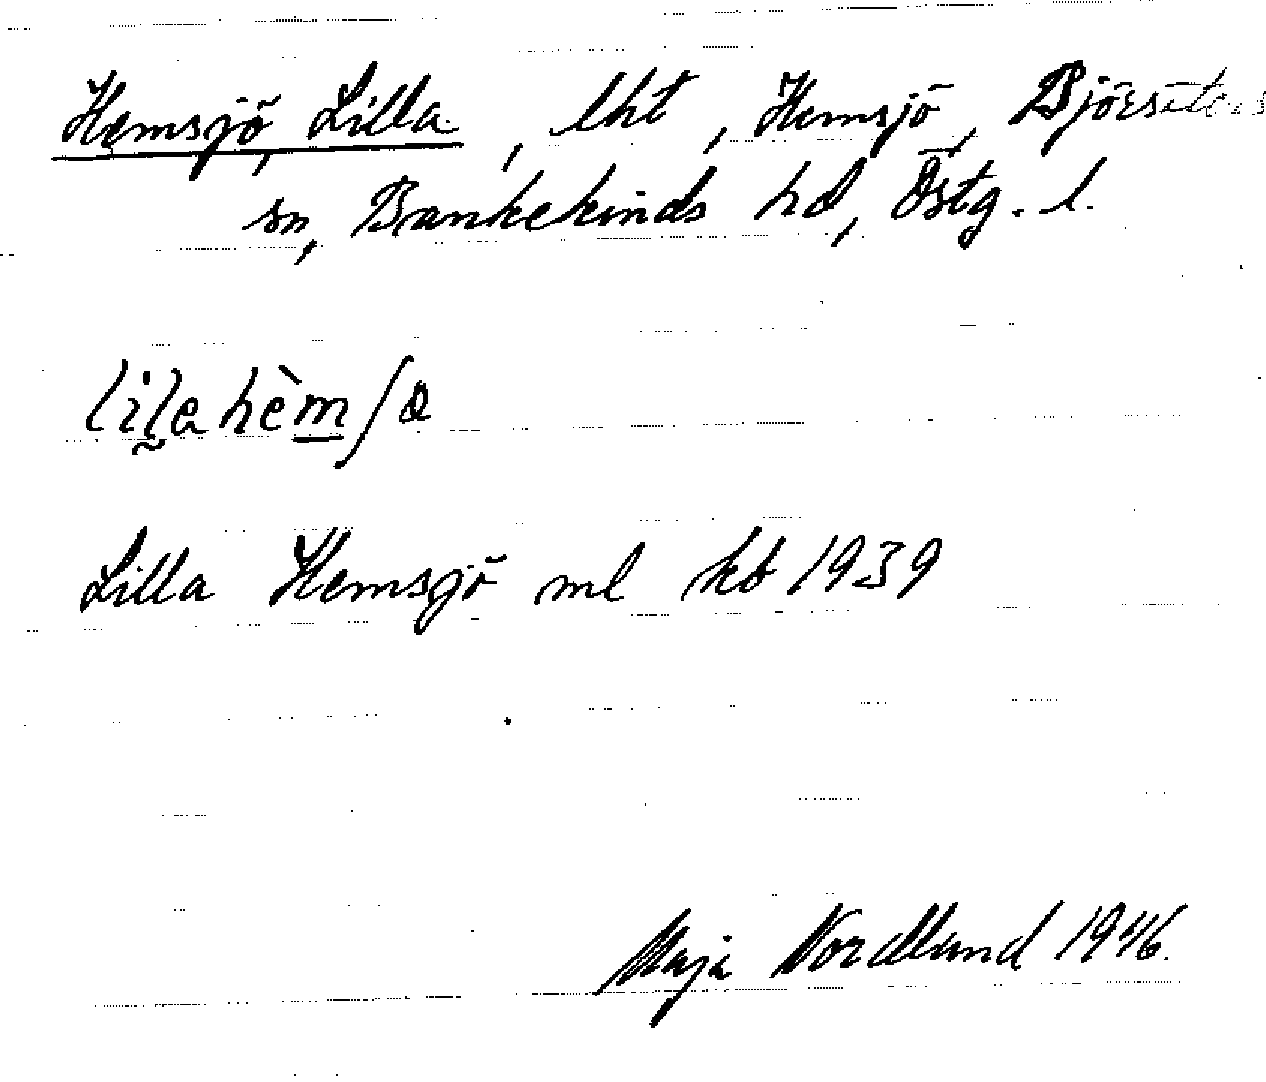 Hemsjö, Lilla, lht, Hemsjö, Björsäters
sn, Bankekinds hd, Östg. l.
lilahèmʃö
Lilla Hemsjö ml kb 1939
Maja Nordlund 1946.